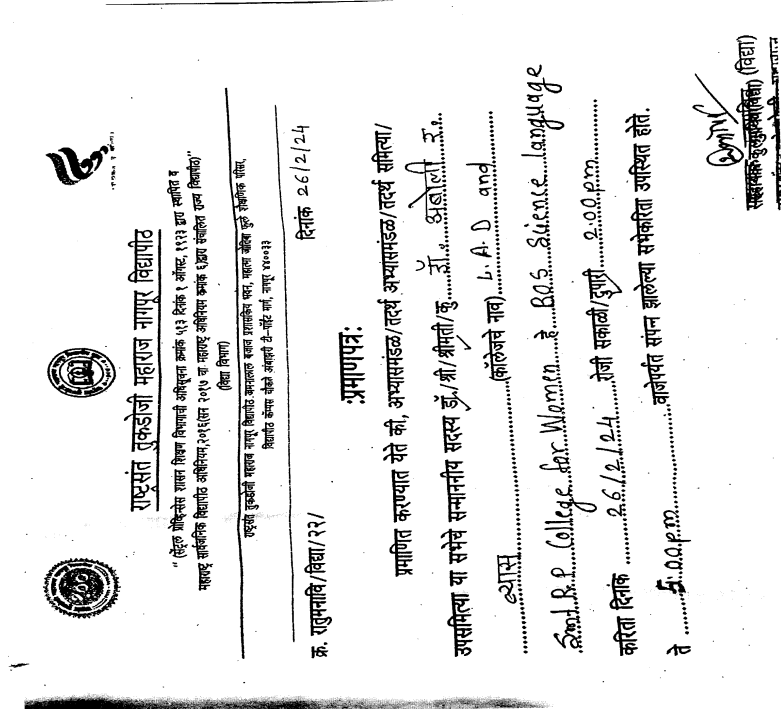 राष्ट्रसंत तुकडोजी महाराज नागपूर विद्यापीठ
" (सेंट्रल प्रोव्हिन्सेस शासन शिक्षण विभागाची अधिसूचना क्रमांक ५१३ दिनांक १ ऑगस्ट, १९२३ द्वारा स्थापित व
महाराष्ट्र सार्वजनिक विद्यापीठ अधिनियम,२०१६(सन २०१७ चा महाराष्ट्र अधिनियम क्रमांक ६)द्वारा संचालित राज्य विद्यापीठ)"
(विद्या विभाग)
राष्ट्रसंत तुकडोजी महाराज नागपूर विद्यापीठ जमनालाल बजाज प्रशासकिय भवन, महात्मा जोतिबा फुले शैक्षणिक परिसर,
विद्यापीठ कॅम्पस चौकते अंबाझरी टी-पॉईंट मार्ग, नागपूर ४४००३३
क्र. रातुमनावि/विद्या/२२/ दिनांक 26/2/24
:प्रमाणपत्र:
प्रमाणित करण्यात येते की, अभ्यासमंडळ/तदर्थ अभ्यासमंडळ/तदर्थ समित्या/
उपसमित्या या सभेचे सन्माननीय सदस्य डॉ./श्री/श्रीमती/कु. डॉ. अबोली र.
व्यास (कॉलेजचे नाव) L.A.D and
Smt R.P College for Women हे BOS Science language
करिता दिनांक 26/2/24 रोजी सकाळी/दुपारी 2:00pm
ते 5:00pm वाजेपर्यंत संपन्न झालेल्या सभेकरिता उपस्थित होते.
(विद्या)